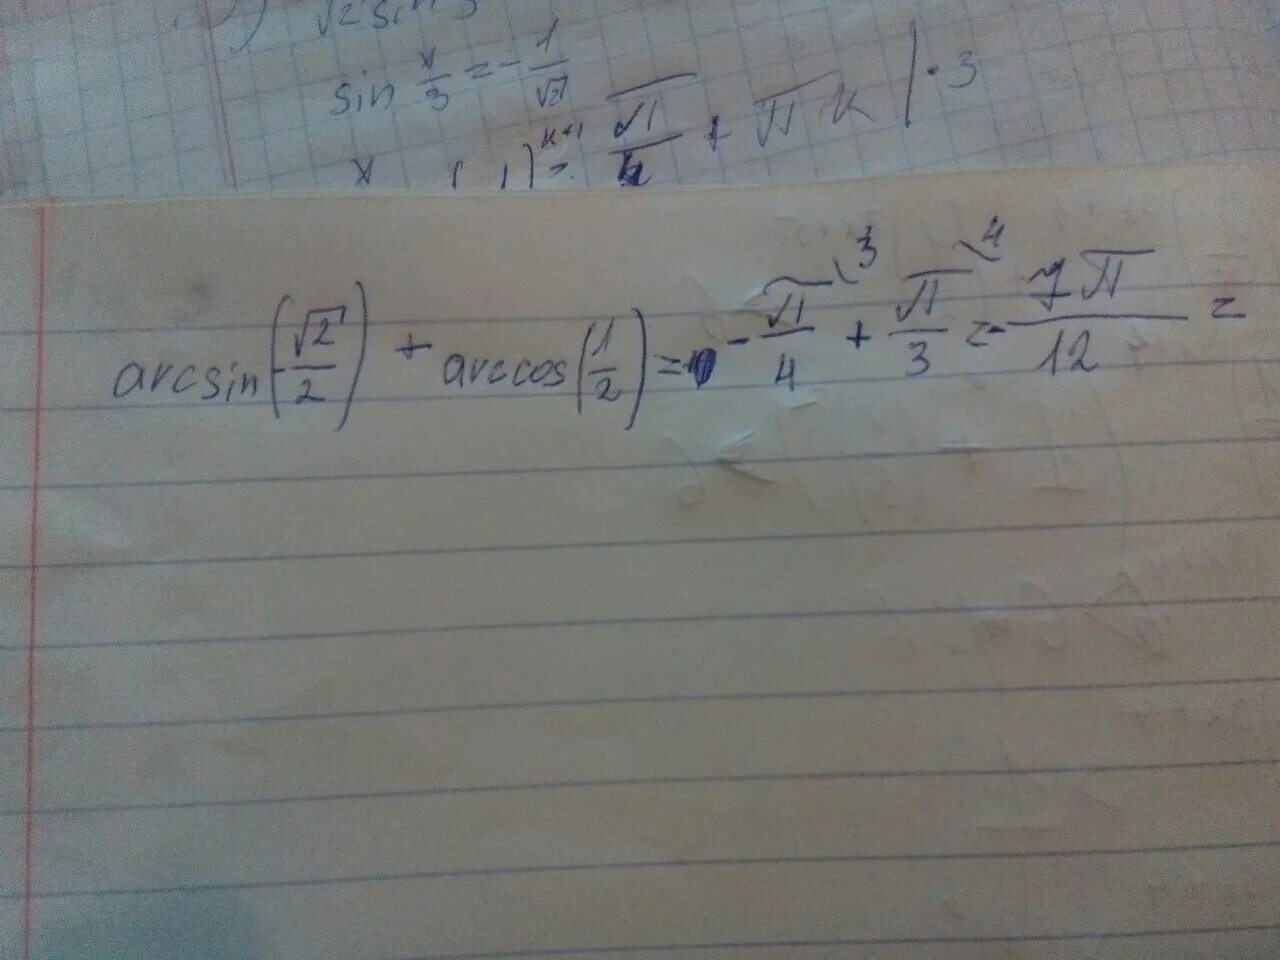 √2 sin
sin x/3 = - 1/√2
x ( 1)^(k+1) π/4 + πk | · 3
arcsin(-√2/2) + arccos(1/2) = - π/4 \3 + π/3 \4 = - 7π/12 =